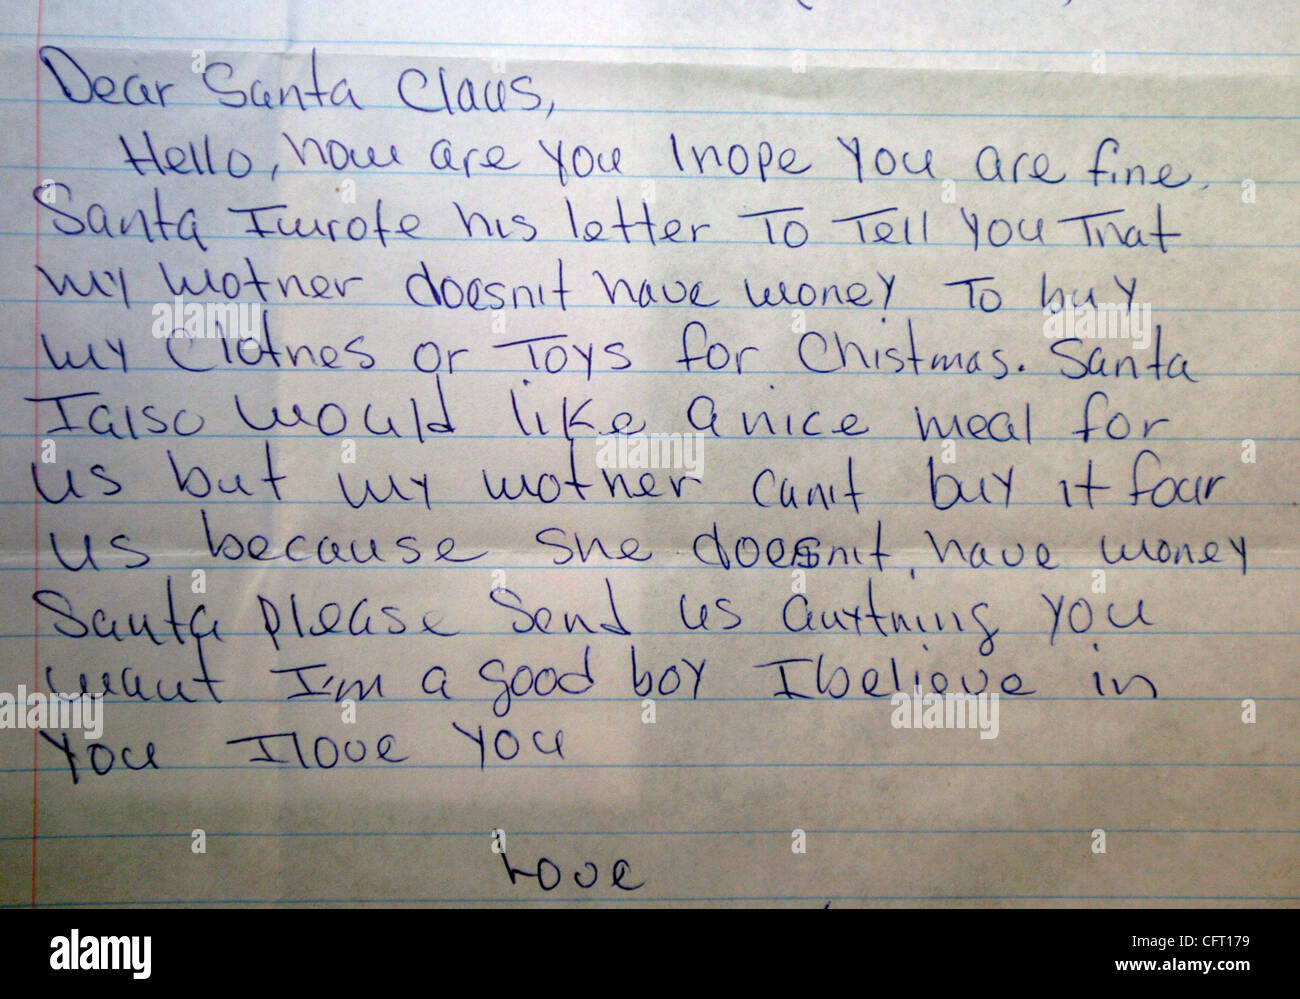 Dear Santa Claus,
Hello, how are you I hope you are fine.
Santa I wrote his letter To Tell you That
my mother doesn't have money To buy
my Clothes or Toys for Chistmas. Santa
I also would like a nice meal for
us but my mother can't buy it four
us because she doesn't, have money
Santa please Send us anything you
want I'm a good boy I believe in
you I love you
Love
alamy
Image ID: CFT179
www.alamy.com